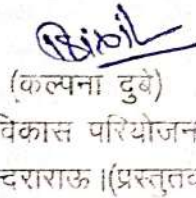 (कल्पना दुबे)
विकास परियोजन
दराराऊ।(प्रस्तुतक